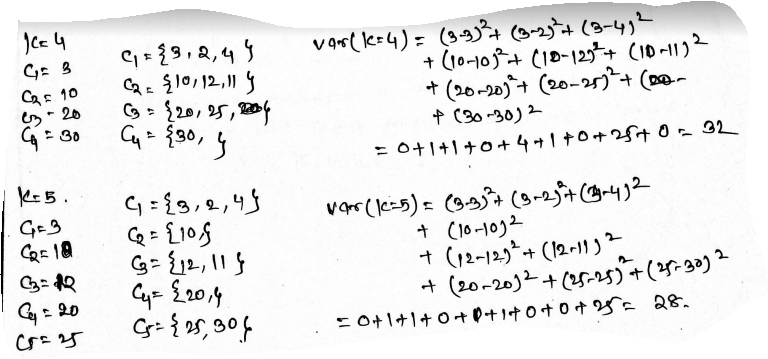 K=4
C1= 3
C2= 10
C3 = 20
C4 = 30
C1 = {3, 2, 4}
C2 = {10, 12, 11}
C3 = {20, 25, }
C4 = {30, }
var(k=4) = (3-3)²+ (3-2)²+ (3-4)²
+ (10-10)²+ (10-12)²+ (10-11)²
+ (20-20)²+ (20-25)²+ (
+ (30-30)²
= 0+1+1+0+4+1+0+25+0 = 32
K=5.
C1=3
C2=10
C3=12
C4 = 20
C5= 25
C1 = {3, 2, 4}
C2 = {10,}
C3= {12, 11}
C4= {20,}
C5= {25, 30}
var(k=5) = (3-3)²+ (3-2)²+ (3-4)²
+ (10-10)²
+ (12-12)²+ (12-11)²
+ (20-20)² + (25-25)²+ (25-30)²
= 0+1+1+0+0+1+0+0+25 = 28.